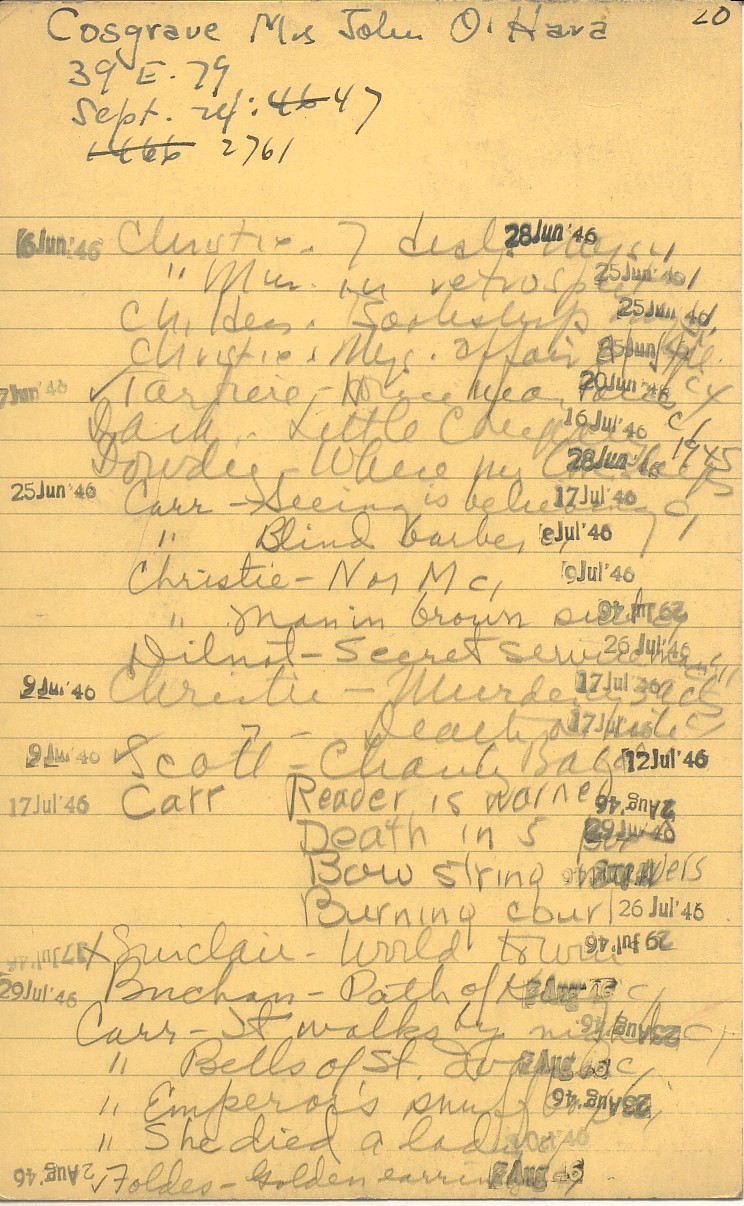 20
Cosgrave Mrs John O'Hara
39 E. 79
Sept. 24: 46 47
1466 2761
6 Jun '46 Christie - 7 dials 28 Jun '46
" Mur. in retrospect 25 Jun '46
Ch. Bookshop 25 Jun '46
Christie. Mys. affair 25 Jun
7 Jun '46 20 Jun '46 c4
Little 16 Jul '46 c1
Dowdey - Where my 28 Jun '46 1945
25 Jun '46 Carr - Seeing is believing 17 Jul '46
" Blind barber Jul '46
Christie - N or M c1 9 Jul '46
" Man in brown suit 29 Jul '46
Dilnot - Secret service 26 Jul '46
9 Jul '46 Christie - Murder 17 Jul '46
" - Death 17 Jul
9 Jul '46 ✓ Scott - Charity Ball 12 Jul '46
17 Jul '46 Carr Reader is warned 2 Aug '46
Death in 5 29 Jul '46
Bow string
Burning court 26 Jul '46
17 Jul '46 Sinclair - World to win 29 Jul '46
29 Jul '46 Buchan - Path of 12 Aug '46
Carr - It walks by night 23 Aug '46 c1
" Bells of St. 12 Aug '46
" Emperor's snuff box 23 Aug '46
" She died a lady '46
2 Aug '46 ✓ Foldes - Golden earrings 12 Aug '46